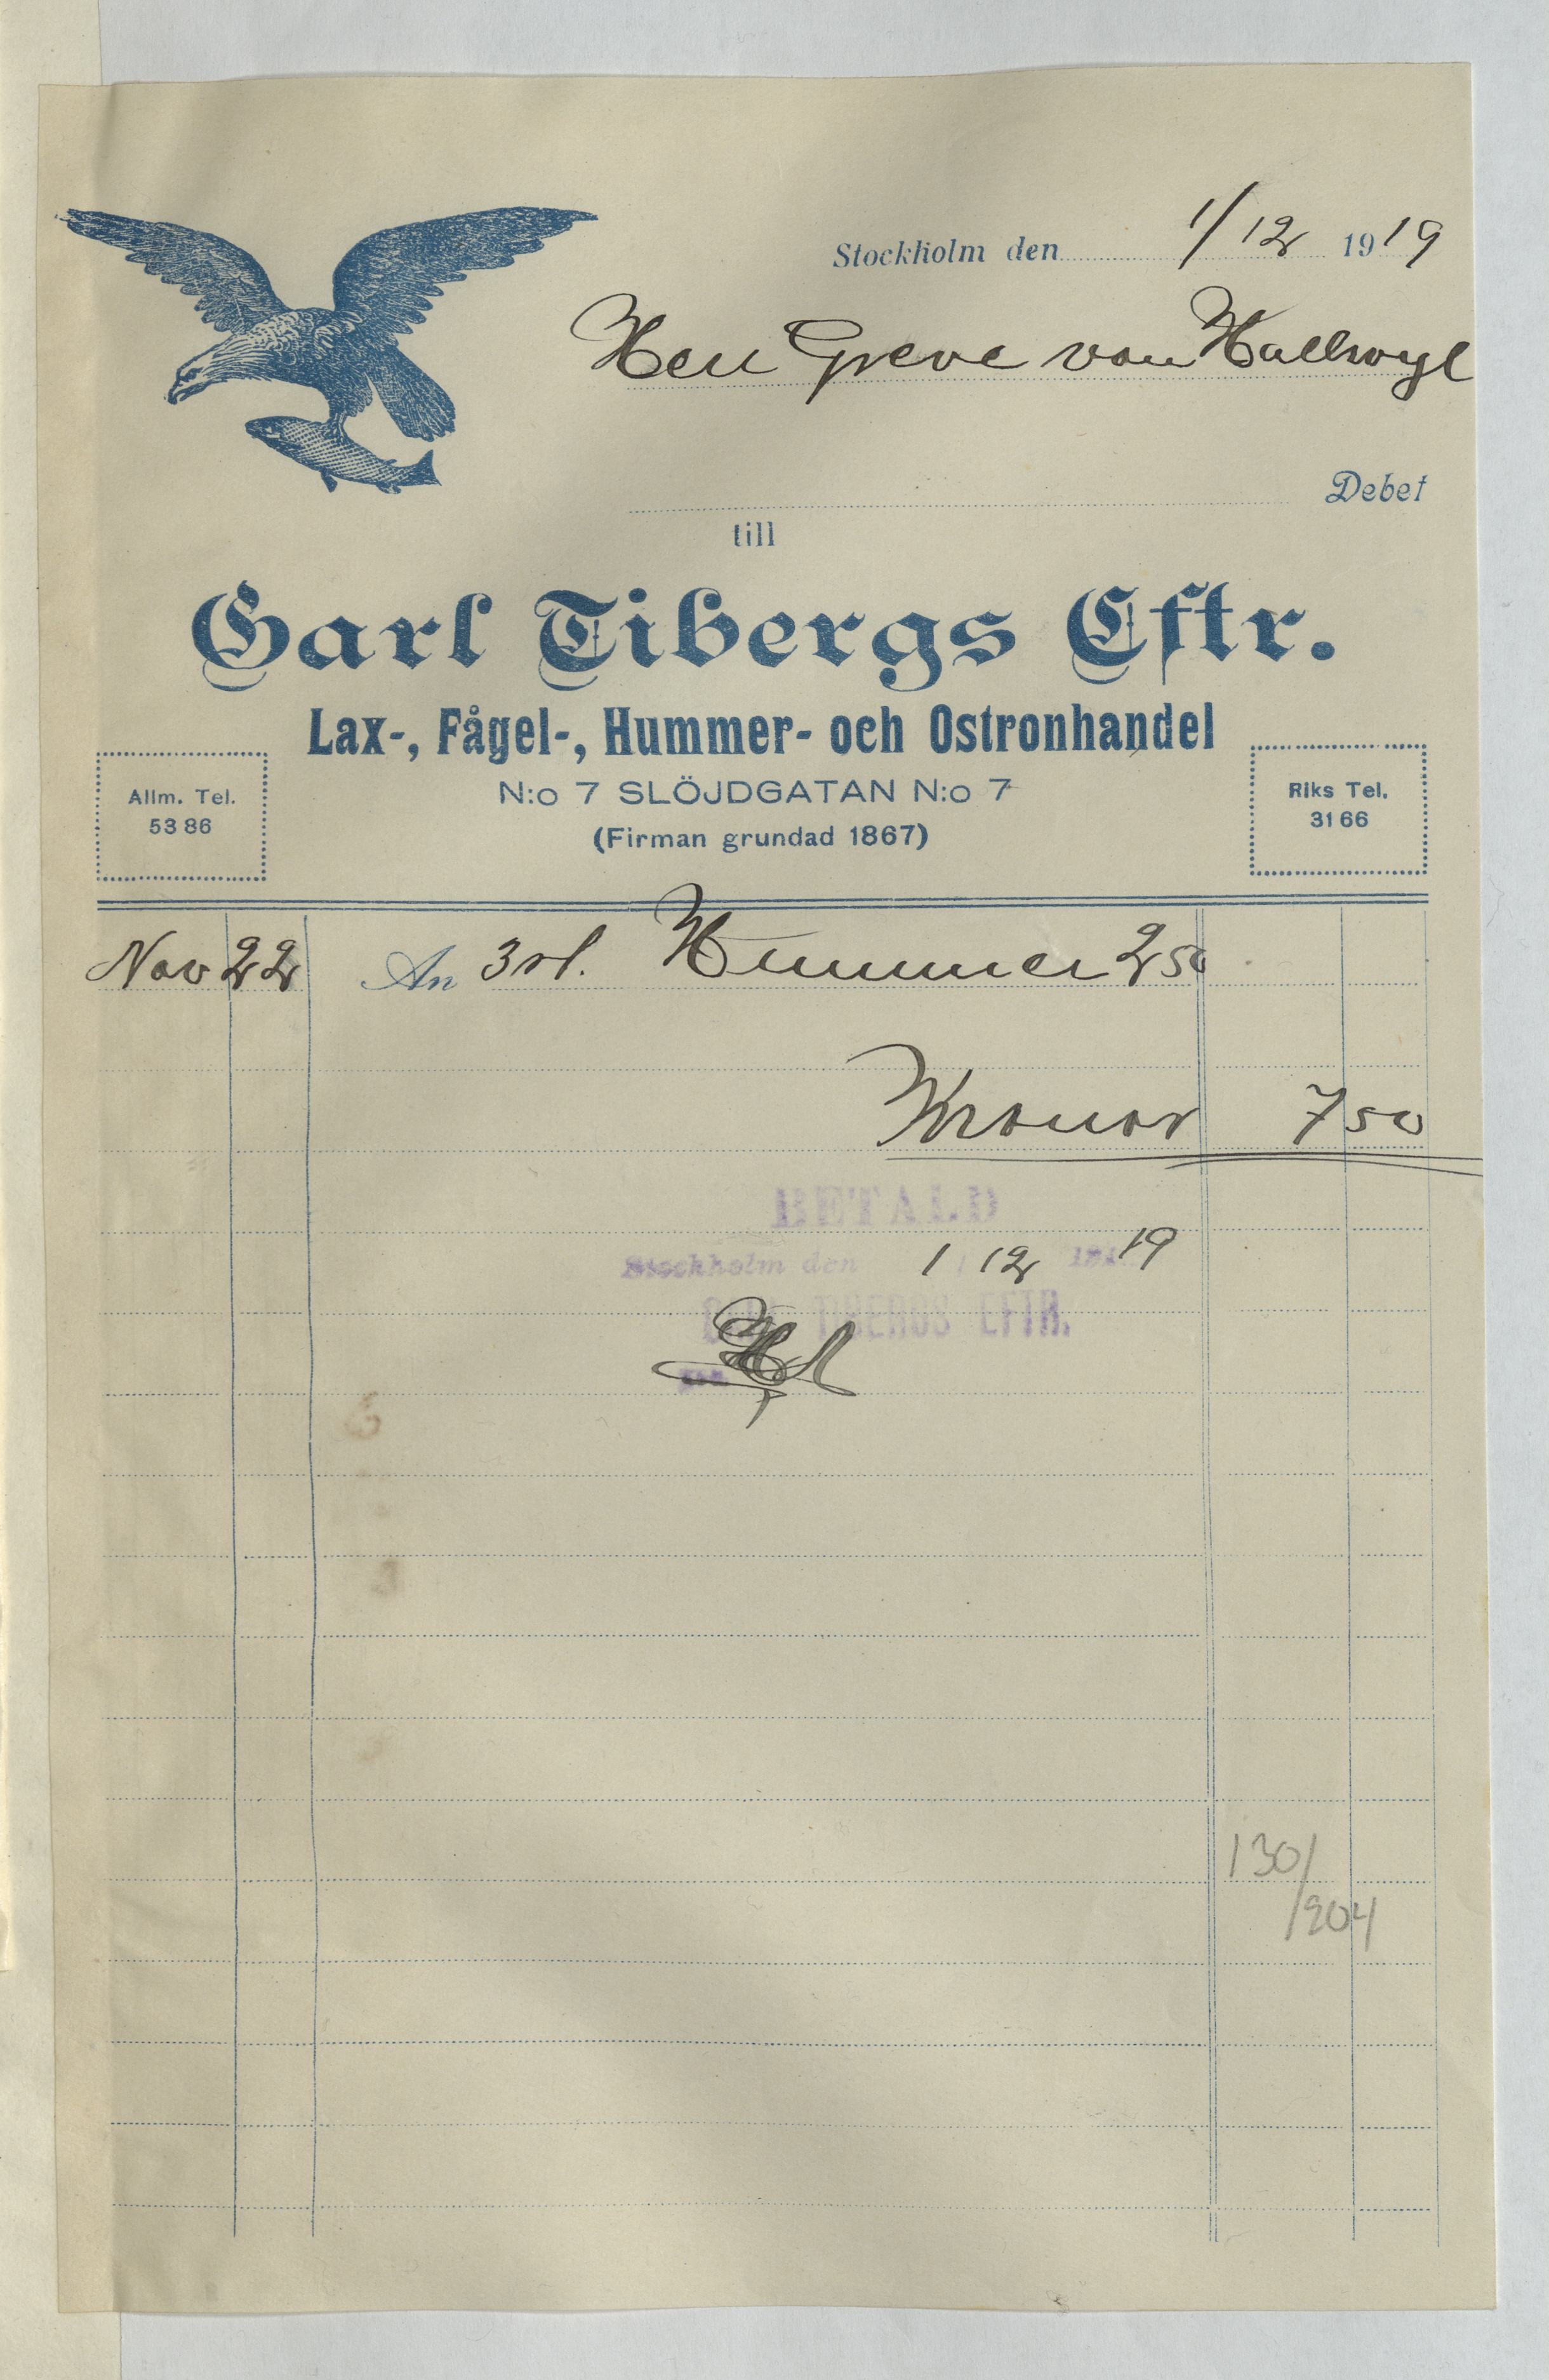 Stockholm den 1/12 1919
Herr Greve von Hallwyl
Debet
till
Carl Tibergs Eftr.
Lax-, Fågel-, Hummer- och Ostronhandel
N:o 7 SLÖJDGATAN N:o 7
(Firman grundad 1867)
Allm. Tel.
53 86
Riks Tel.
31 66
Nov 22 An 3 st. Hummer 2 50
Kronor 7 50
BETALD
Stockholm den 1 12 19
TIBERGS EFTR.
130/
/204